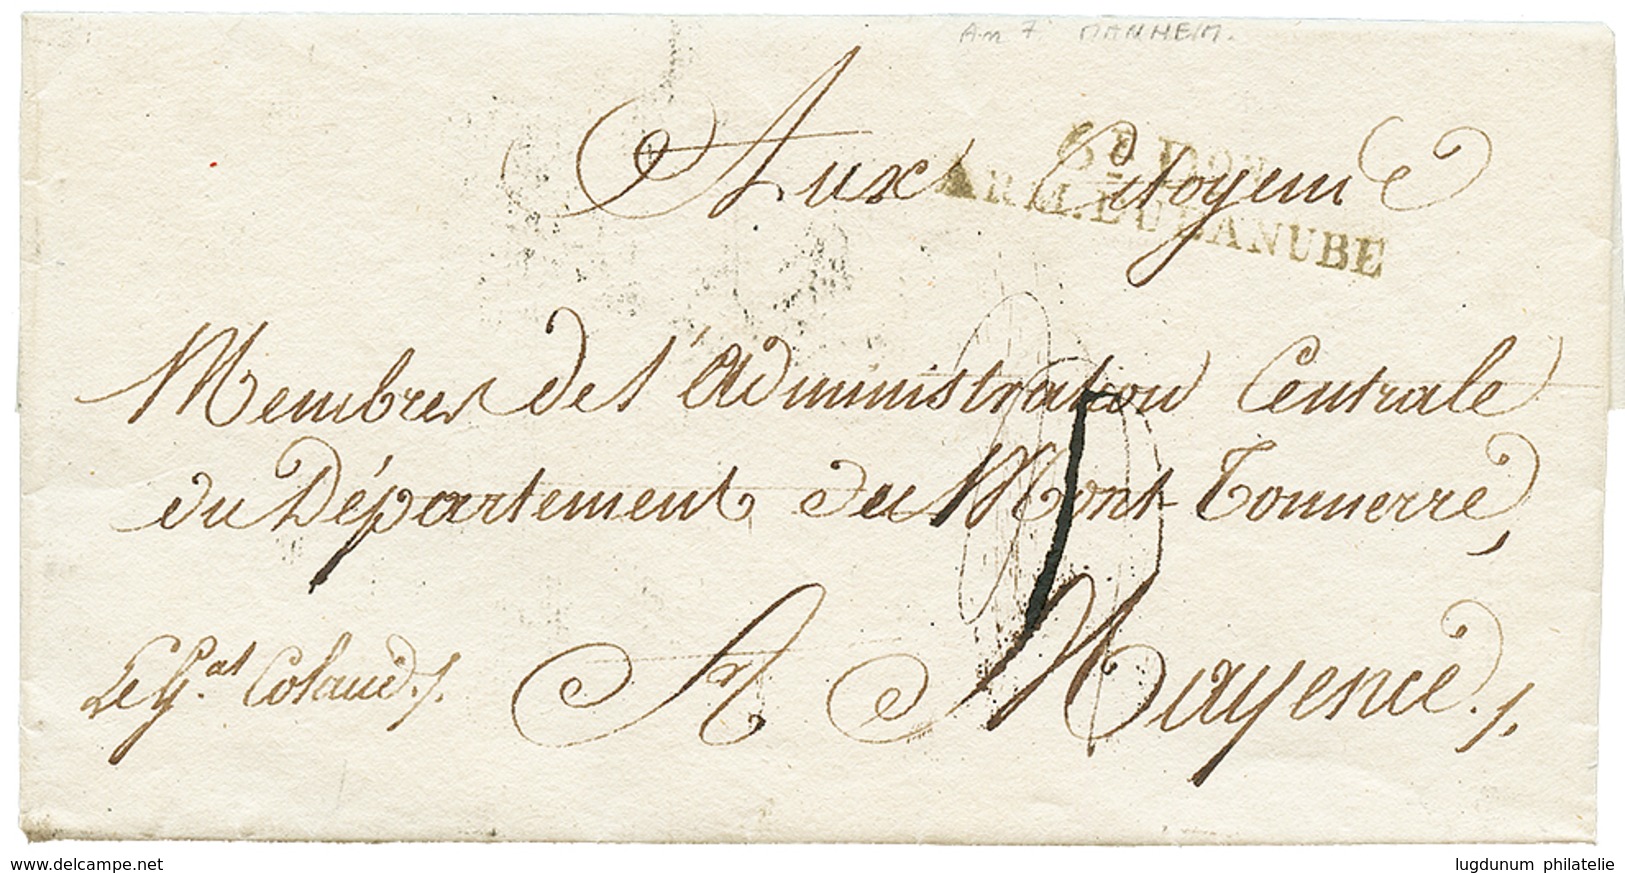 An 7. MANHEIM.
Aux Citoyens
ARM. DU DANUBE
Membres de l'Administration Centrale
du Département du Mont-Tonnerre,
Le Gal. Colaud ./.
A Mayence ./.
www.delcampe.net
lugdunum philatelie